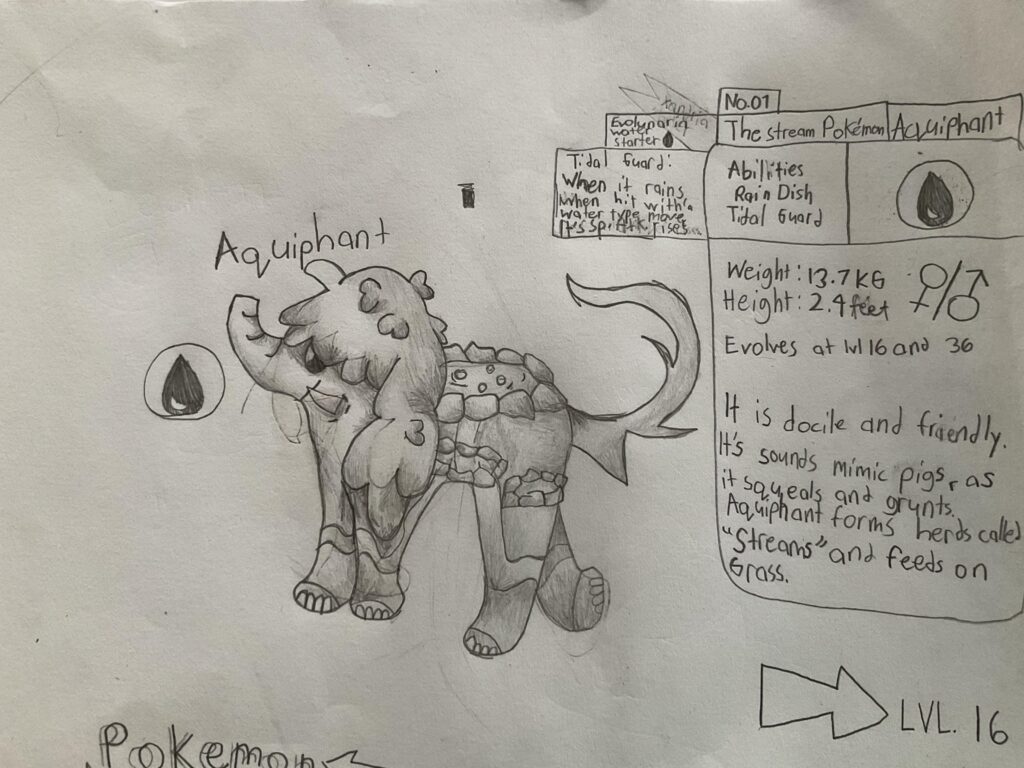 No.01
The stream Pokémon Aquiphant
Evolynaria
water
starter
Tidal Guard:
When it rains
When hit with a
water type move
It's rises...
Abillities
Rain Dish
Tidal Guard
Aquiphant
Weight: 13.7 KG
Height: 2.4 feet
Evolves at lvl 16 and 36
It is docile and friendly.
It's sounds mimic pigs, as
it squeals and grunts.
Aquiphant forms herds called
"Streams" and feeds on
Grass.
LVL. 16
Pokemon